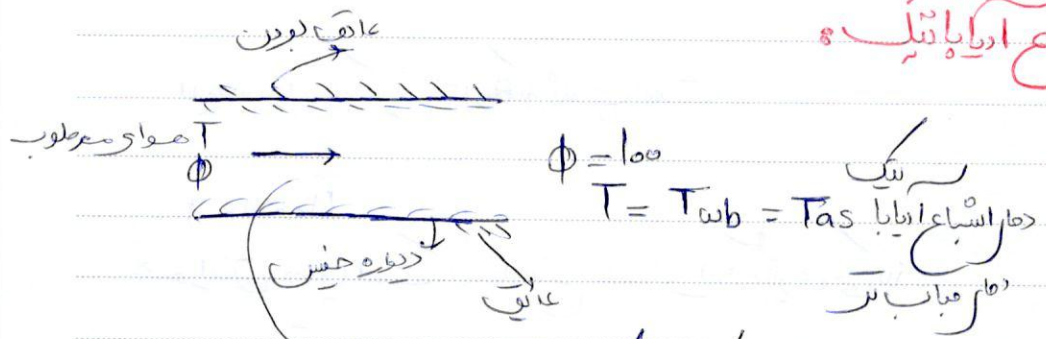 ع آدیاباتیک :
عایق بودن
هوای مرطوب T
ϕ
ϕ = 100
T = Twb = Tas دمای اشباع آدیاباتیک
دمای حباب تر
دیواره خیس
عایق